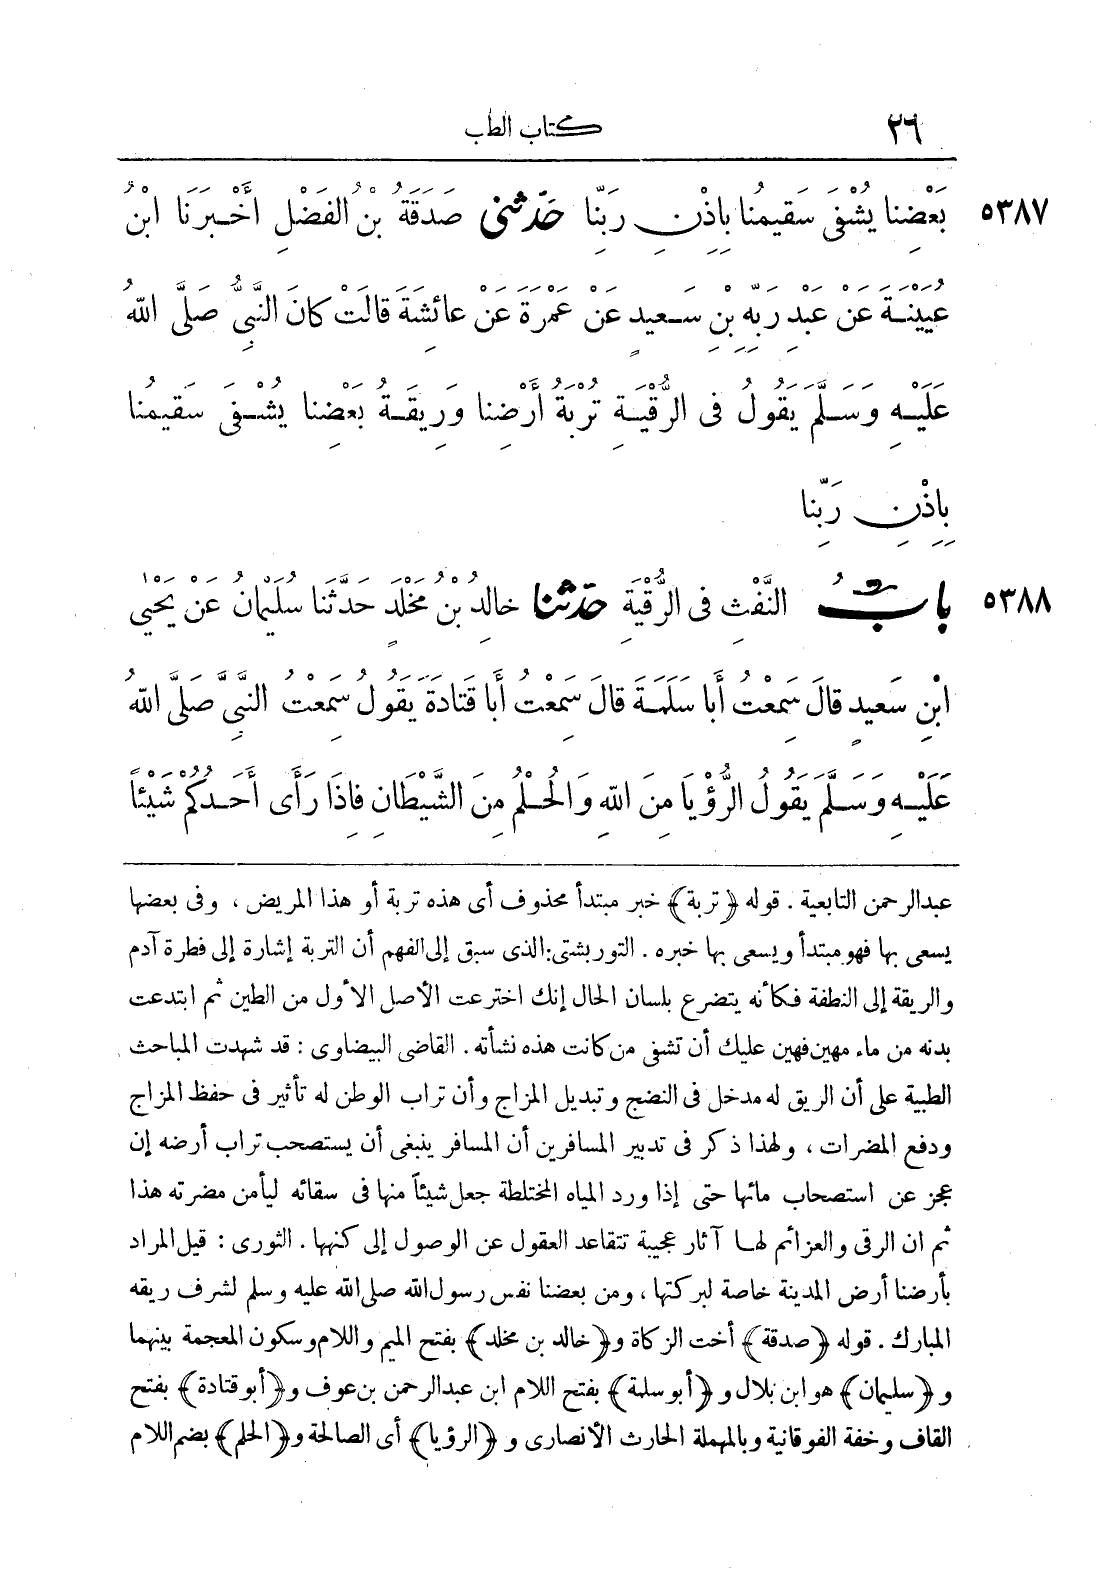 ٢٦ كتاب الطب
٥٣٨٧ بَعْضِنَا يُشْفَى سَقِيمُنَا بِإِذْنِ رَبِّنَا حَدَّثَنِى صَدَقَةُ بْنُ الْفَضْلِ أَخْبَرَنَا ابْنُ
عُيَيْنَةَ عَنْ عَبْدِ رَبِّهِ بْنِ سَعِيدٍ عَنْ عَمْرَةَ عَنْ عَائِشَةَ قَالَتْ كَانَ النَّبِىُّ صَلَّى اللهُ
عَلَيْهِ وَسَلَّمَ يَقُولُ فِى الرُّقْيَةِ تُرْبَةُ أَرْضِنَا وَرِيقَةُ بَعْضِنَا يُشْفَى سَقِيمُنَا
بِإِذْنِ رَبِّنَا
٥٣٨٨ بَابُ النَّفْثِ فِى الرُّقْيَةِ حَدَّثَنَا خَالِدُ بْنُ مَخْلَدٍ حَدَّثَنَا سُلَيْمَانُ عَنْ يَحْيَى
ابْنِ سَعِيدٍ قَالَ سَمِعْتُ أَبَا سَلَمَةَ قَالَ سَمِعْتُ أَبَا قَتَادَةَ يَقُولُ سَمِعْتُ النَّبِىَّ صَلَّى اللهُ
عَلَيْهِ وَسَلَّمَ يَقُولُ الرُّؤْيَا مِنَ اللهِ وَالْحُلْمُ مِنَ الشَّيْطَانِ فَإِذَا رَأَى أَحَدُكُمْ شَيْئًا
عبد الرحمن التابعية . قوله ﴿تربة﴾ خبر مبتدأ محذوف أى هذه تربة أو هذا المريض ، وفى بعضها
يسعى بها فهو مبتدأ ويسعى بها خبره . التوربشتى: الذى سبق إلى الفهم أن التربة إشارة إلى فطرة آدم
والريقة إلى النطفة فكأنه يتضرع بلسان الحال إنك اخترعت الأصل الأول من الطين ثم ابتدعت
بدنه من ماء مهين فهين عليك أن تشفى من كانت هذه نشأته . القاضى البيضاوى : قد شهدت المباحث
الطبية على أن الريق له مدخل فى النضج وتبديل المزاج وأن تراب الوطن له تأثير فى حفظ المزاج
ودفع المضرات ، ولهذا ذكر فى تدبير المسافرين أن المسافر ينبغى أن يستصحب تراب أرضه إن
عجز عن استصحاب مائها حتى إذا ورد المياه المختلطة جعل شيئاً منها فى سقائه ليأمن مضرته هذا
ثم ان الرقى والعزائم لها آثار عجيبة تتقاعد العقول عن الوصول إلى كنهها . الثورى : قيل المراد
بأرضنا أرض المدينة خاصة لبركتها ، ومن بعضنا نفس رسول الله صلى الله عليه وسلم لشرف ريقه
المبارك . قوله ﴿صدقة﴾ أخت الزكاة و﴿خالد بن مخلد﴾ بفتح الميم واللام وسكون المعجمة بينهما
و ﴿سليمان﴾ هو ابن بلال و ﴿أبو سلمة﴾ بفتح اللام ابن عبد الرحمن بن عوف و﴿أبو قتادة﴾ بفتح
القاف وخفة الفوقانية وبالمهملة الحارث الأنصارى و ﴿الرؤيا﴾ أى الصالحة و﴿الحلم﴾ بضم اللام